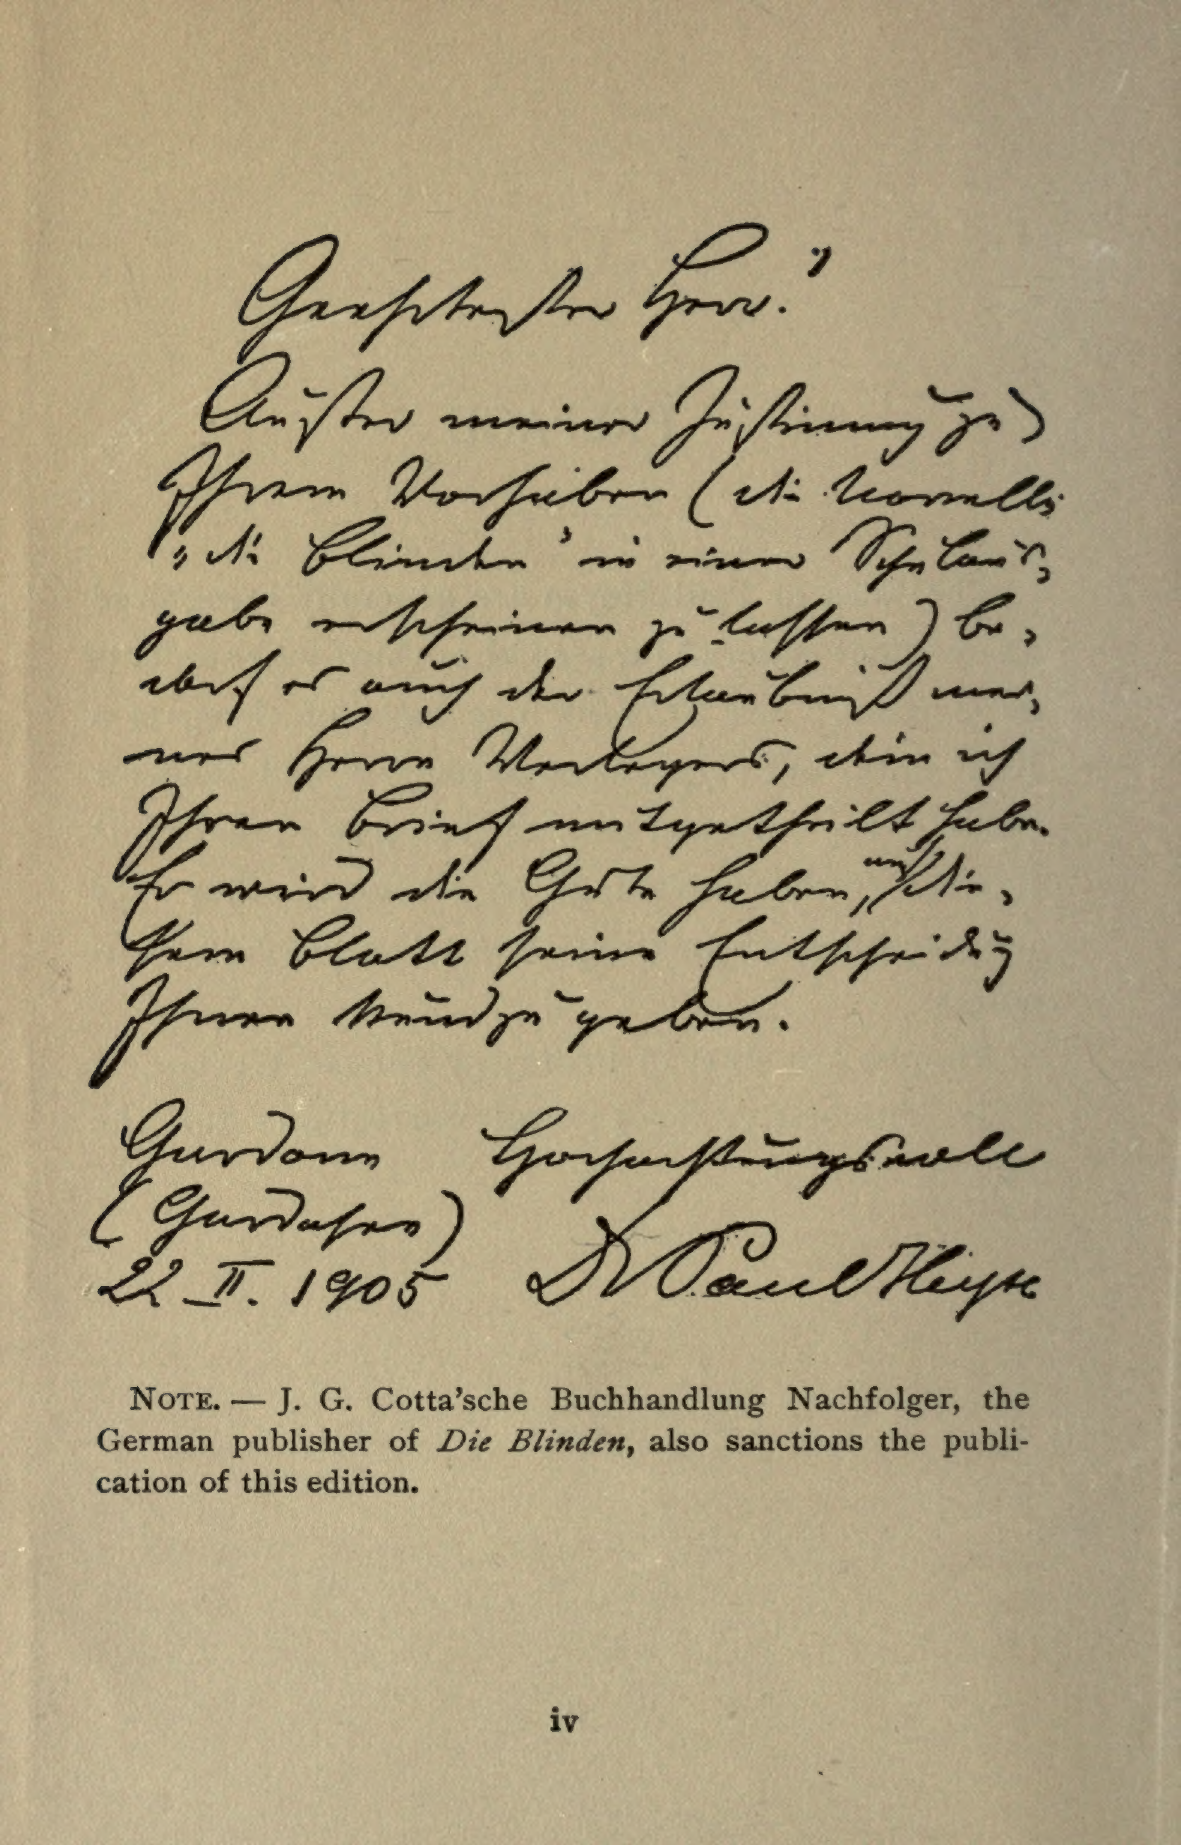 Geehrtester Herr!
Außer meiner Zustimmung zu
Ihrem Vorhaben (die Novelle
„die Blinden" in einer Schulaus-
gabe erscheinen zu lassen) be-
darf es auch der Erlaubniß mei-
nes Herrn Verlegers, dem ich
Ihren Brief mitgetheilt habe.
Er wird die Güte haben, auf die-
sem Blatt seine Entscheidung
Ihnen kundzugeben.
Gardone Hochachtungsvoll
(Gardasee)
22 II. 1905 Dr Paul Heyse
NOTE. — J. G. Cotta'sche Buchhandlung Nachfolger, the
German publisher of Die Blinden, also sanctions the publi-
cation of this edition.
iv